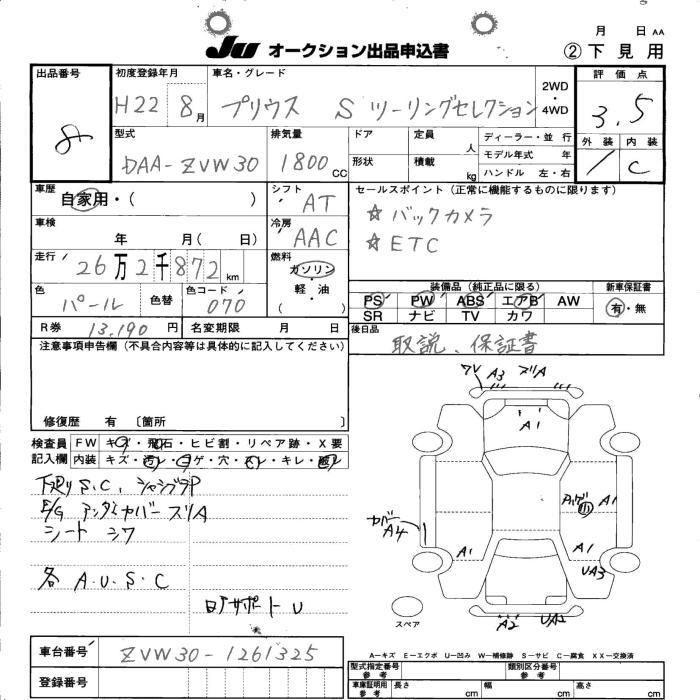 JU オークション出品申込書
月 日 AA
② 下見用
出品番号 8
初度登録年月 H22 8月
車名・グレード プリウス S ツーリングセレクション
2WD・4WD
評価点 3.5
外装 / 内装 C
型式 DAA-ZVW30
排気量 1800 CC
ドア 定員 人
形状 積載 kg
ディーラー・並行
モデル年式 年
ハンドル 左・右
車歴 自家用・( )
シフト AT
セールスポイント(正常に機能するものに限ります)
☆ バックカメラ
☆ ETC
車検 年 月( 日)
冷房 AAC
走行 26万2千872 km
燃料 ガソリン・軽・油 ( )
色 パール 色替 色コード 070
装備品(純正品に限る) 新車保証書
PS PW ABS エアB AW 有・無
SR ナビ TV カワ
R券 13,190円 名変期限 月 日
後日品 取説、保証書
注意事項申告欄(不具合内容等は具体的に記入してください)
修復歴 有 〔箇所 〕
検査員 FW キズ・飛石・ヒビ割・リペア跡・X要
記入欄 内装 キズ・汚レ・コゲ・穴・スレ・キレ・破レ
下廻りS.C、
E/G アンダーカバーズリA
シート シワ
各 A.U.S.C
U
A3 ズリA
A1
A1
カバー A4
A1
A1
UA3
A2 UA2
スペア
A−キズ E−エクボ U−凹み W−補修跡 S−サビ C−腐食 XX−交換済
車台番号 ZVW30-1261325
登録番号
型式指定番号 参考 類別区分番号 参考
車庫証明用 参考 長さ cm 幅 cm 高さ cm